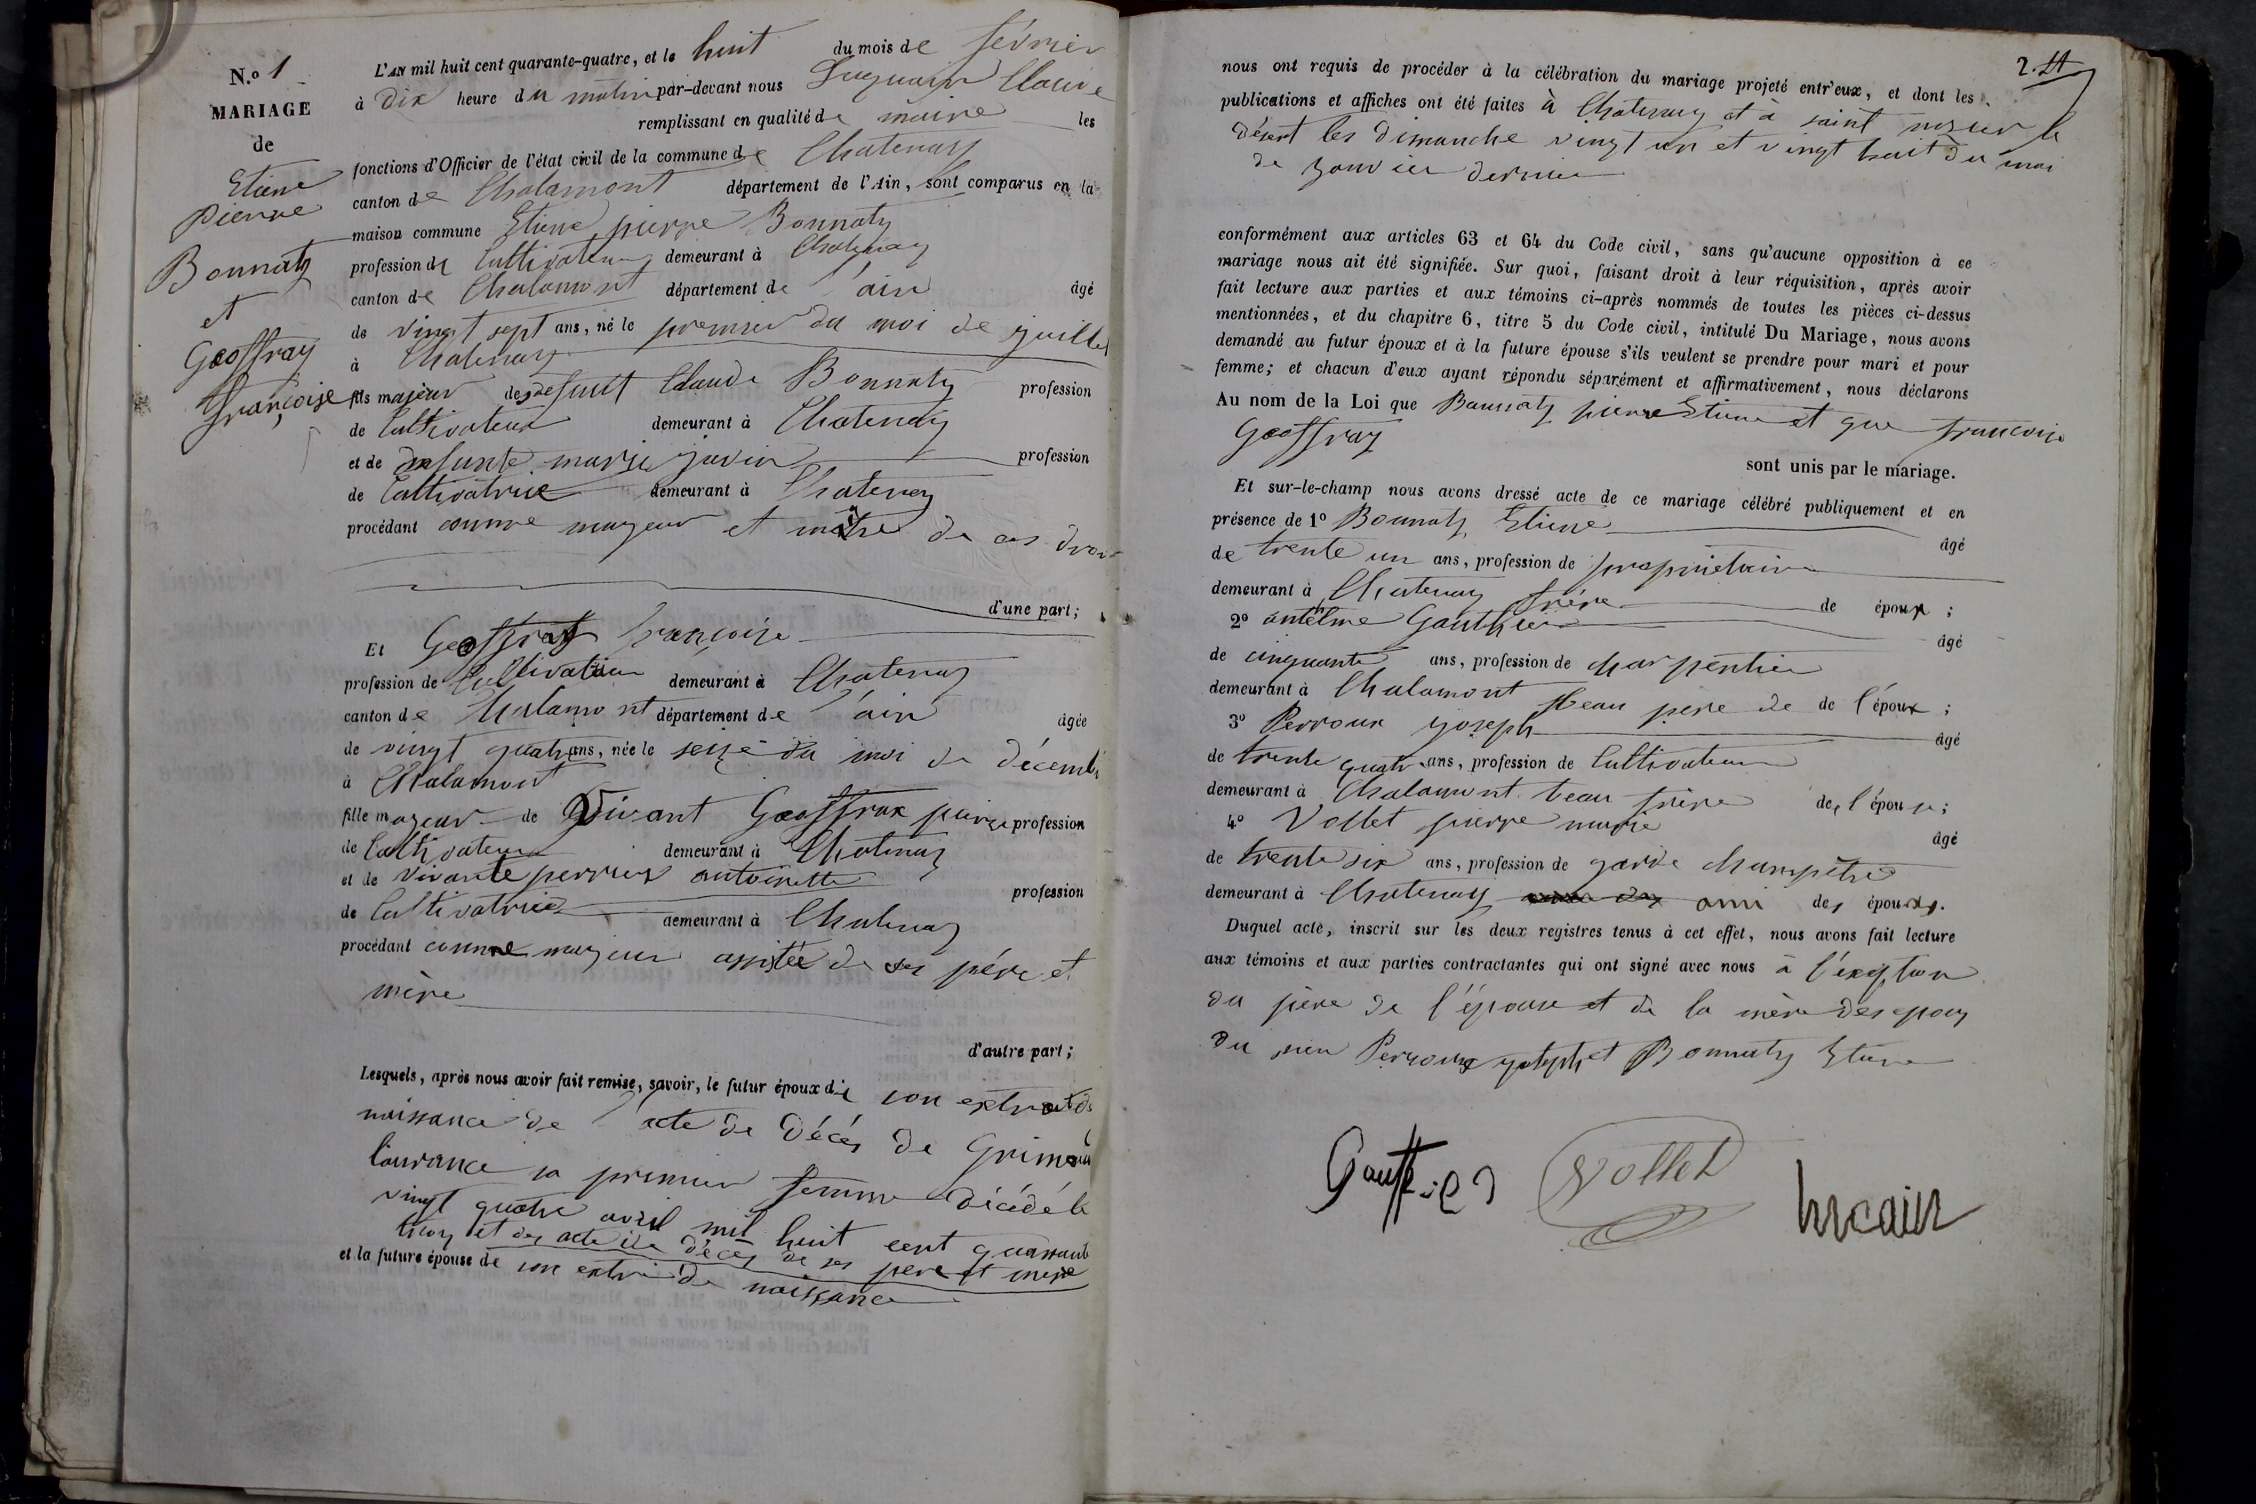 N.o 1
MARIAGE
de
Etiene
Pierre
Bonnaty
et
Geoffray
françoise
L'AN mil huit cent quarante-quatre, et le huit du mois de février
à dix heure du matin par-devant nous Claude
remplissant en qualité de maire les
fonctions d'Officier de l'état civil de la commune de Chatenay
canton de Chalamont département de l'Ain, sont comparus en la
maison commune Etiene pierre Bonnaty
profession de Cultivateur demeurant à Chatenay
canton de Chalamont département de l'ain âgé
de vingt sept ans, né le premier du moi de juillet
à Chatenay
fils majeur de defunt Claude Bonnaty profession
de Cultivateur demeurant à Chatenay
et de defunte marie javin profession
de Cultivatrice demeurant à Chatenay
procédant comme mayeur et mètre de ces droi
d'une part;
Et Geoffray françoise
profession de Cultivateur demeurant à Chatenay
canton de Chalamont département de l'ain âgée
de vingt quatre ans, née le seize du moi de décembre
à Chalamont
fille mayeur de Vivant Geoffray pierre profession
de Cultivateur demeurant à Chatenay
et de vivante perrier antoinette profession
de Cultivatrice demeurant à Chatenay
procédant comme mayeur assistée de ses pére et
mère
d'autre part;
Lesquels, après nous avoir fait remise, savoir, le futur époux de son extrait de
naissance de l'acte de décés de
laurance sa premier femme décédé le
vingt quatre avril mil huit cent quarante
troy et des acte de décès de ses pere et mere
et la future épouse de son extrai de naissance
2.
nous ont requis de procéder à la célébration du mariage projeté entr'eux, et dont les
publications et affiches ont été faites à Chatenay et à saint nizier le
désert les dimanche vingt un et vingt huit du moi
de janvier dernier
conformément aux articles 63 et 64 du Code civil, sans qu'aucune opposition à ce
mariage nous ait été signifiée. Sur quoi, faisant droit à leur réquisition, après avoir
fait lecture aux parties et aux témoins ci-après nommés de toutes les pièces ci-dessus
mentionnées, et du chapitre 6, titre 5 du Code civil, intitulé Du Mariage, nous avons
demandé au futur époux et à la future épouse s'ils veulent se prendre pour mari et pour
femme; et chacun d'eux ayant répondu séparément et affirmativement, nous déclarons
Au nom de la Loi que Bonnaty pierre Etiene et que francoise
Geoffray
sont unis par le mariage.
Et sur-le-champ nous avons dressé acte de ce mariage célébré publiquement et en
présence de 1o Bonnaty Etiene
âgé
de trente un ans, profession de propriétaire
demeurant à Chatenay frére de époux;
2o antelme Gauthier
âgé
de cinquante ans, profession de charpentier
demeurant à Chalamont beau pere de de l'époux;
3o Perroux yoseph
âgé
de trente quatre ans, profession de Cultivateur
demeurant à Chalamont beau frère de l'époux;
4o Vollet pierre marie
âgé
de trente six ans, profession de garde champétre
demeurant à Chatenay ami des époux.
Duquel acte, inscrit sur les deux registres tenus à cet effet, nous avons fait lecture
aux témoins et aux parties contractantes qui ont signé avec nous à l'éxeption
du pére de l'épouse et de la mère des epoux
du sieu Perroux yoseph et Bonnaty Etiene
Vollet